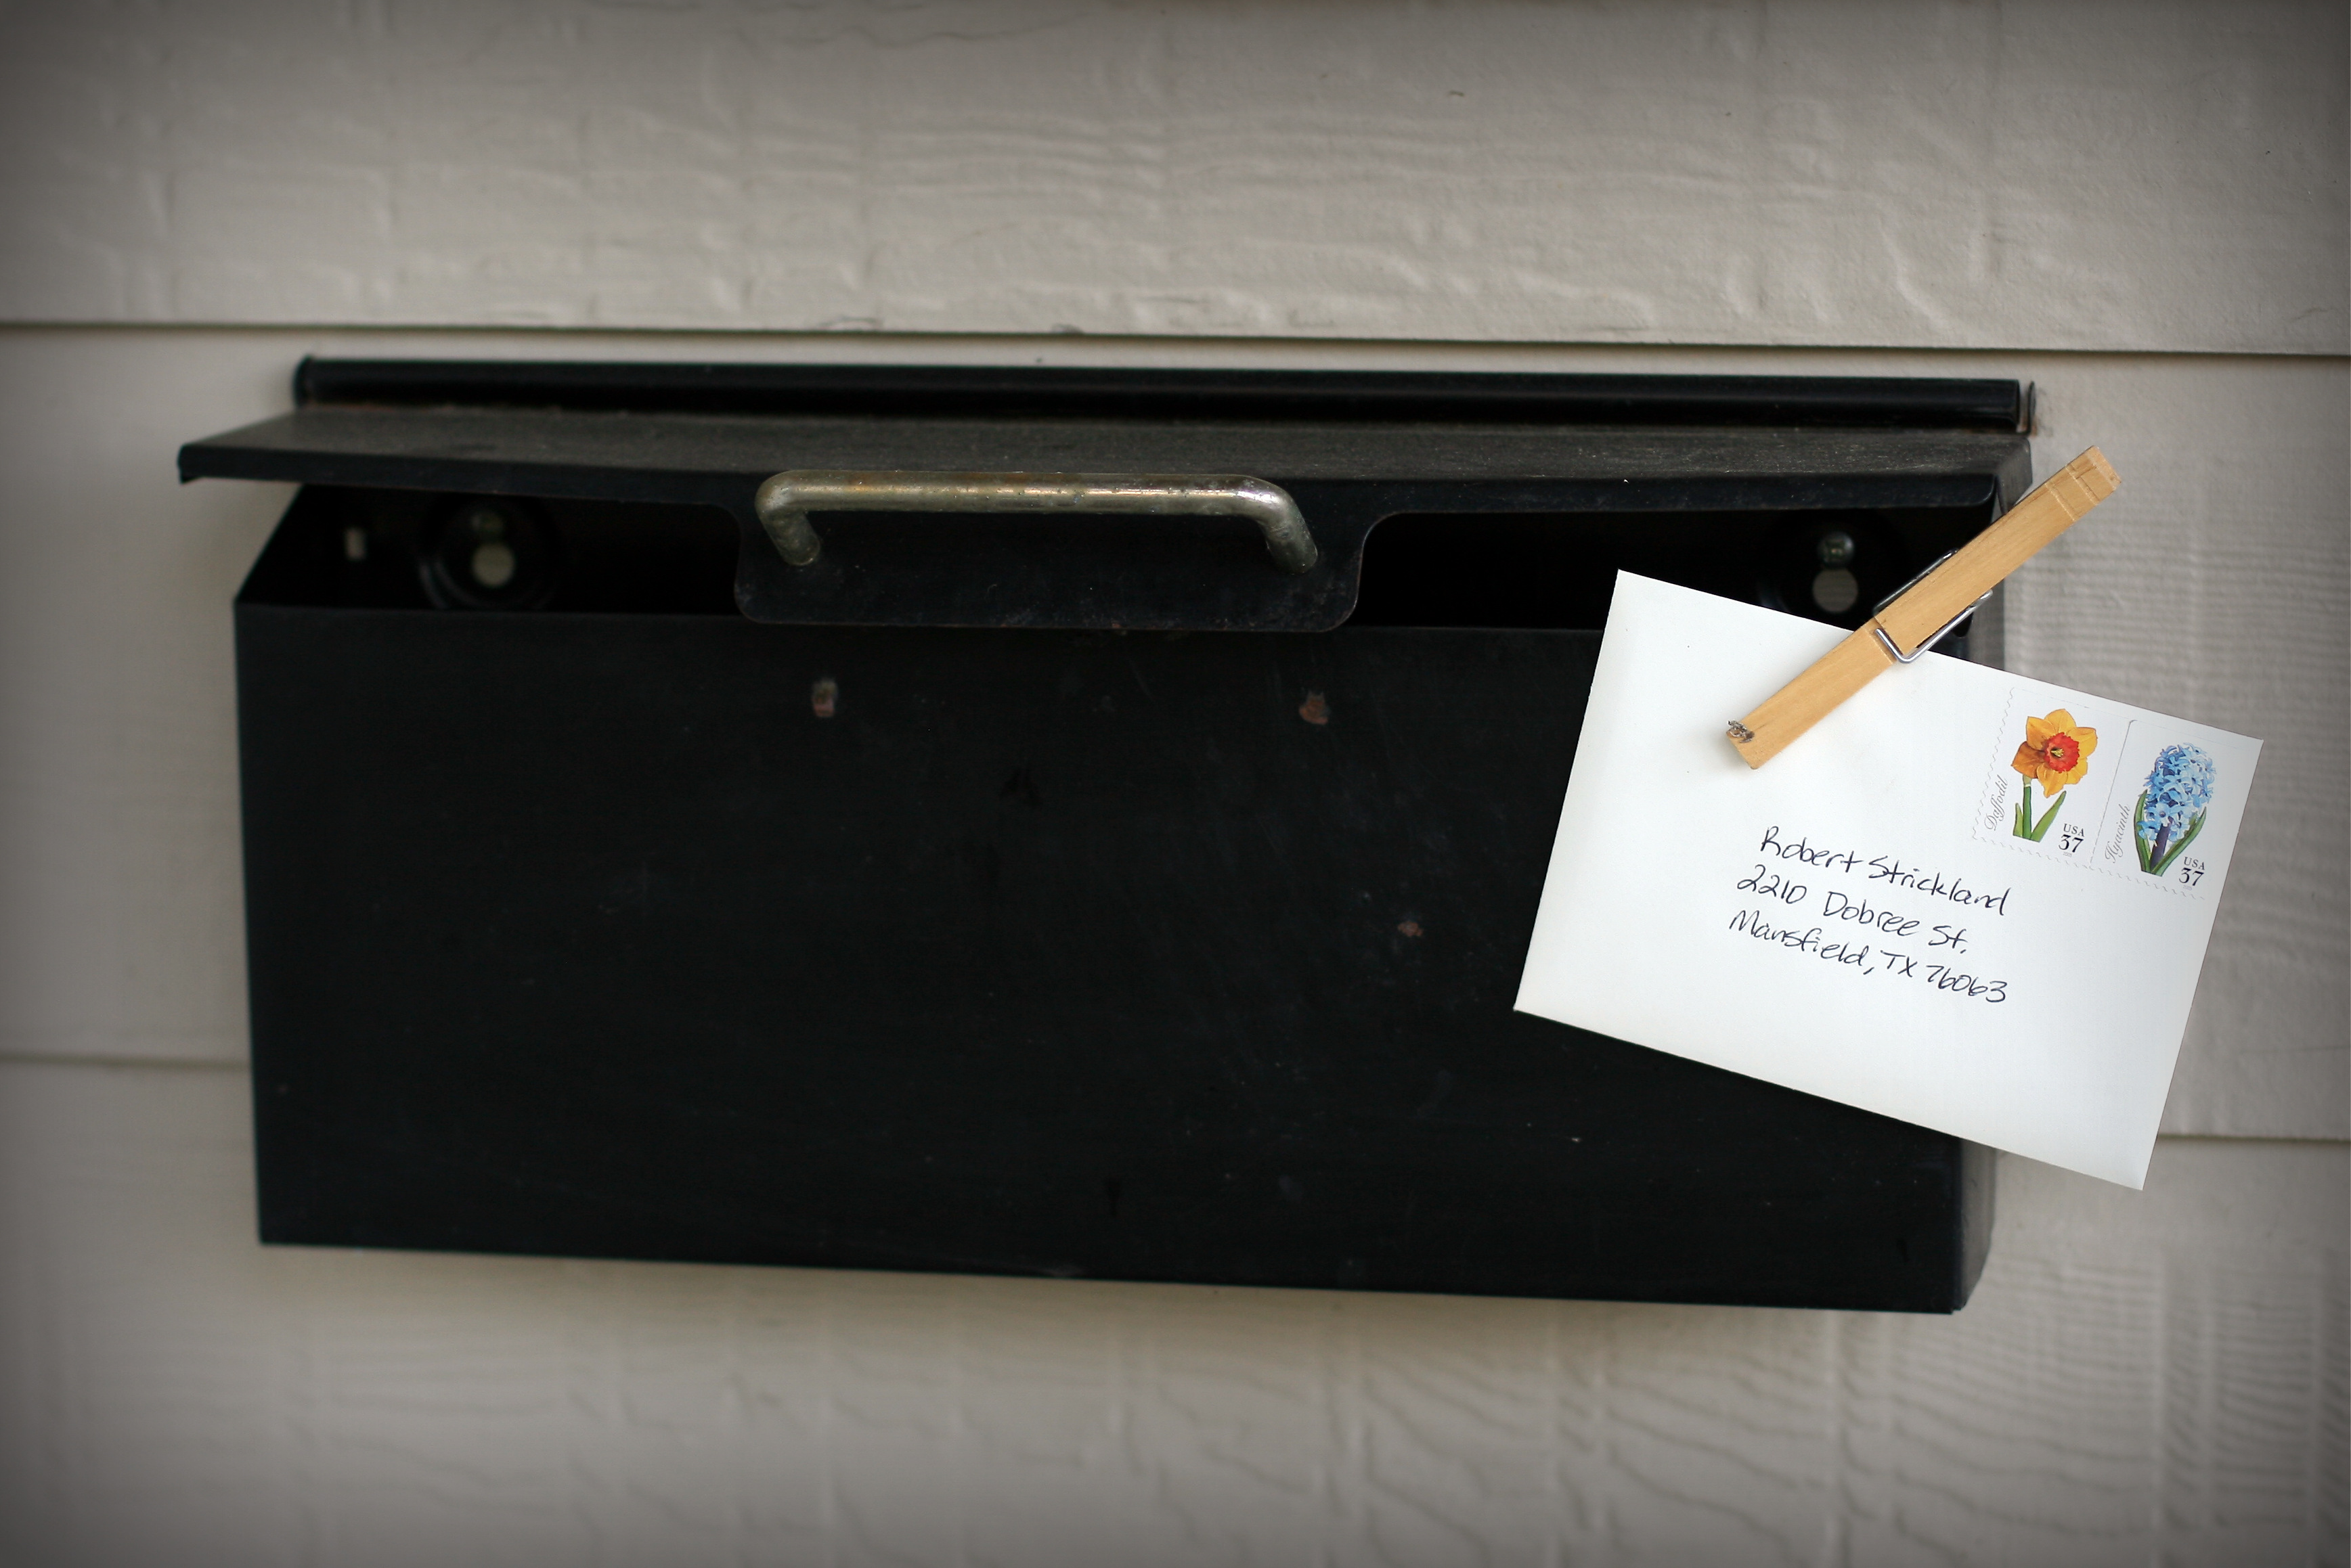 Daffodil
USA
37
Hyacinth
USA
37
Robert Strickland
2210 Dobree St.
Mansfield, TX 76063